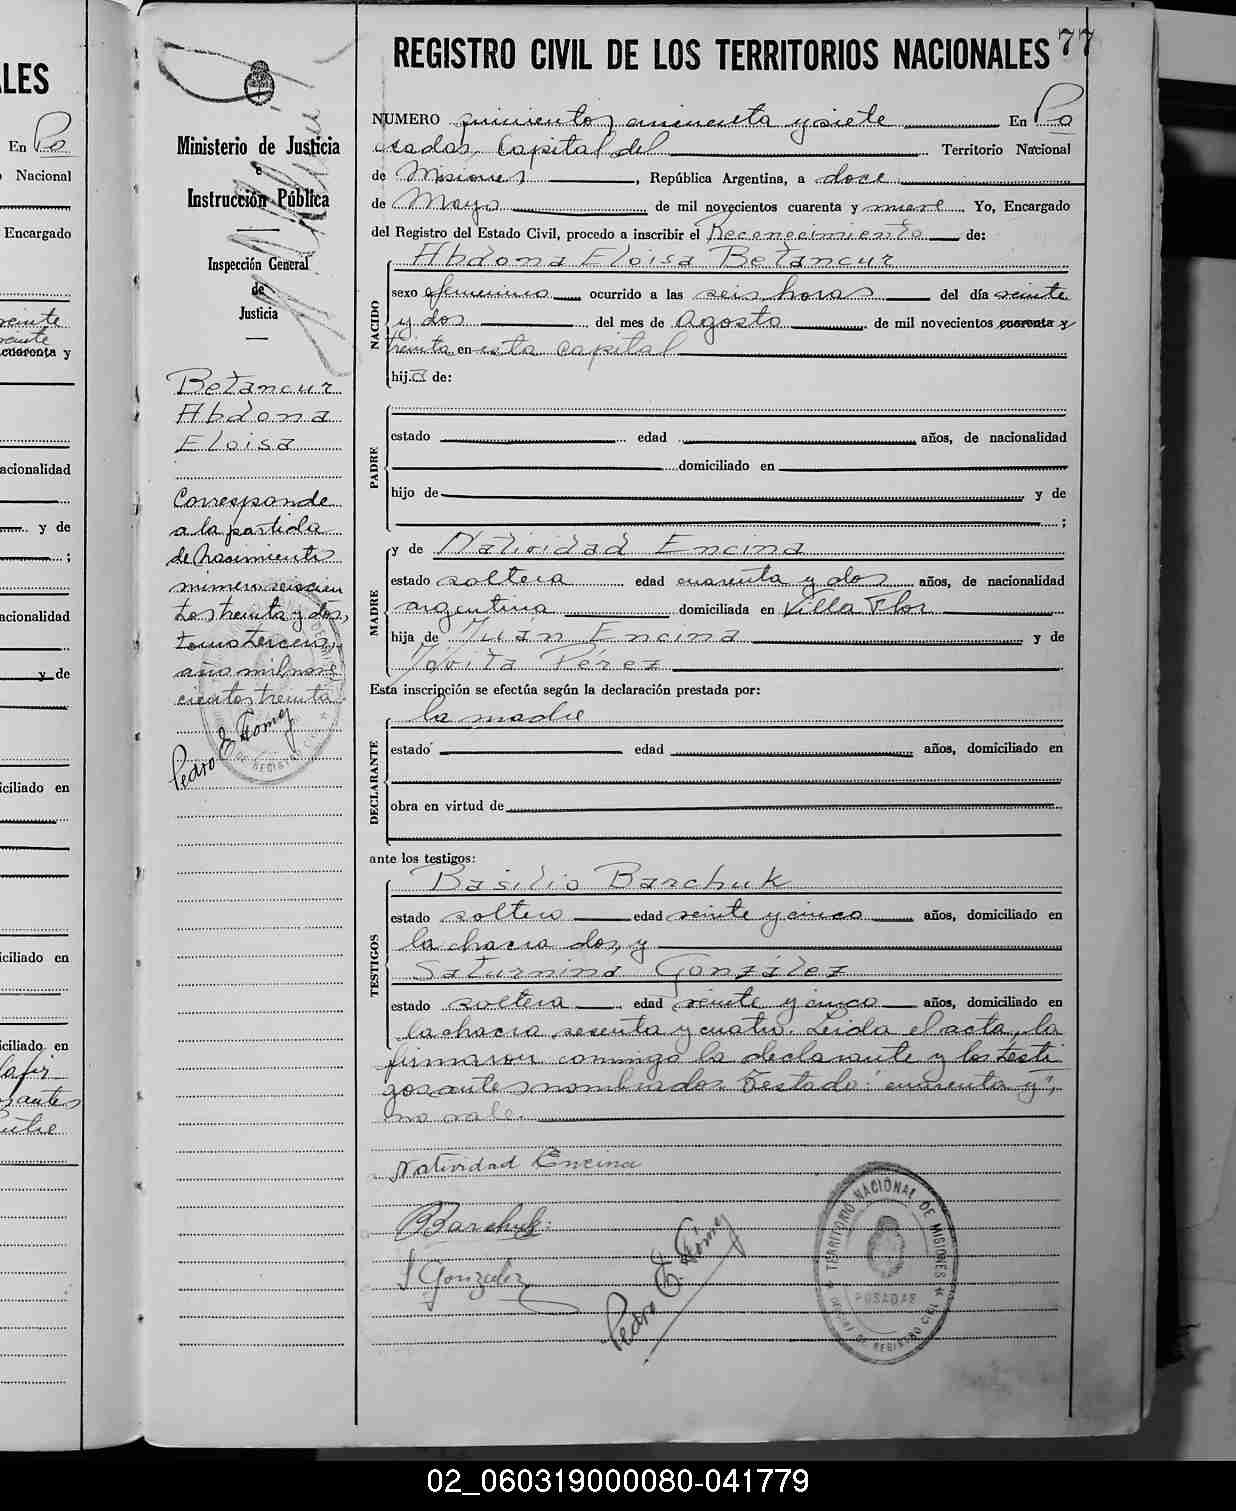 LES
En Po
Nacional
Encargado
veinte
veinte
cuarenta y
acionalidad
y de
;
acionalidad
y de
iciliado en
iciliado en
iciliado en
77
Ministerio de Justicia
e
Instrucción Pública
Inspección General
de
Justicia
Betancur
Abdona
Eloisa
Corresponde
a la partida
de Nacimiento
número seiscien
tos treinta y dos,
tomo tercero,
año mil nove
cientos treinta.
Pedro E. Gómez
REGISTRO CIVIL DE LOS TERRITORIOS NACIONALES
NUMERO quinientos cincuenta y siete En Po
sadas, Capital del Territorio Nacional
de Misiones, República Argentina, a doce
de Mayo de mil novecientos cuarenta y nueve. Yo, Encargado
del Registro del Estado Civil, procedo a inscribir el Reconocimiento de:
NACIDO
Abdona Eloisa Betancur
sexo femenino ocurrido a las seis horas del día veinte
y dos del mes de Agosto de mil novecientos cuarenta y
treinta en esta capital
hija de:
PADRE
estado edad años, de nacionalidad
domiciliado en
hijo de y de
;
MADRE
y de Natividad Encina
estado soltera edad cuarenta y dos años, de nacionalidad
argentina domiciliada en Villa Flor
hija de Juan Encina y de
Jovita Pérez
Esta inscripción se efectúa según la declaración prestada por:
DECLARANTE
la madre
estado edad años, domiciliado en
obra en virtud de
ante los testigos:
TESTIGOS
Basilio Barchuk
estado soltero edad veinte y cinco años, domiciliado en
la chacra dos, y
Saturnina González
estado soltera edad veinte y cinco años, domiciliado en
la chacra sesenta y cuatro. Leida el acta, la
firmaron conmigo la declarante y los testi
gos antes nombrados. Testado: "cuarenta y",
no vale.
Natividad Encina
Barchuk
S Gonzalez
Pedro E. Gómez
TERRITORIO NACIONAL DE MISIONES
POSADAS
DE REGISTRO CIVIL
02_060319000080-041779